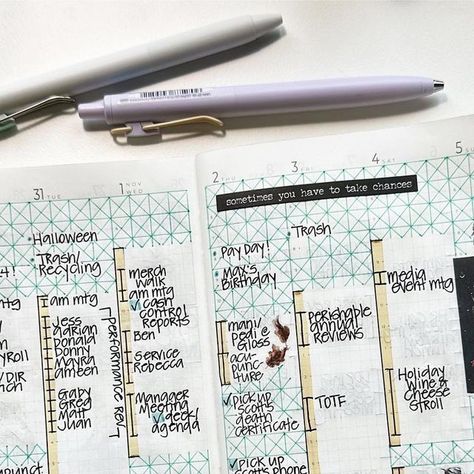 31 TUE
Halloween
Trash/
Recycling
am mtg
Jess
Adrian
Donald
Donny
Mayra
Ameen
Gaby
Greg
Matt
Juan
PERFORMANCE REV.
1 NOV WED
merch
walk
am mtg
cash
control
reports
Ben
Service
Rebecca
Manager
Meeting
deck/
agenda
2 THU
sometimes you have to take chances
PAY DAY!
Max's
Birthday
mani/
pedi @
Gloss
acu-
punc-
ture
Pick up
Scott's
death
certificate
Pick up
Scott's phone
3 FRI
Trash
perishable
annual
reviews
TOTF
4 SAT
media
event mtg
Holiday
Wine &
Cheese
Stroll
5